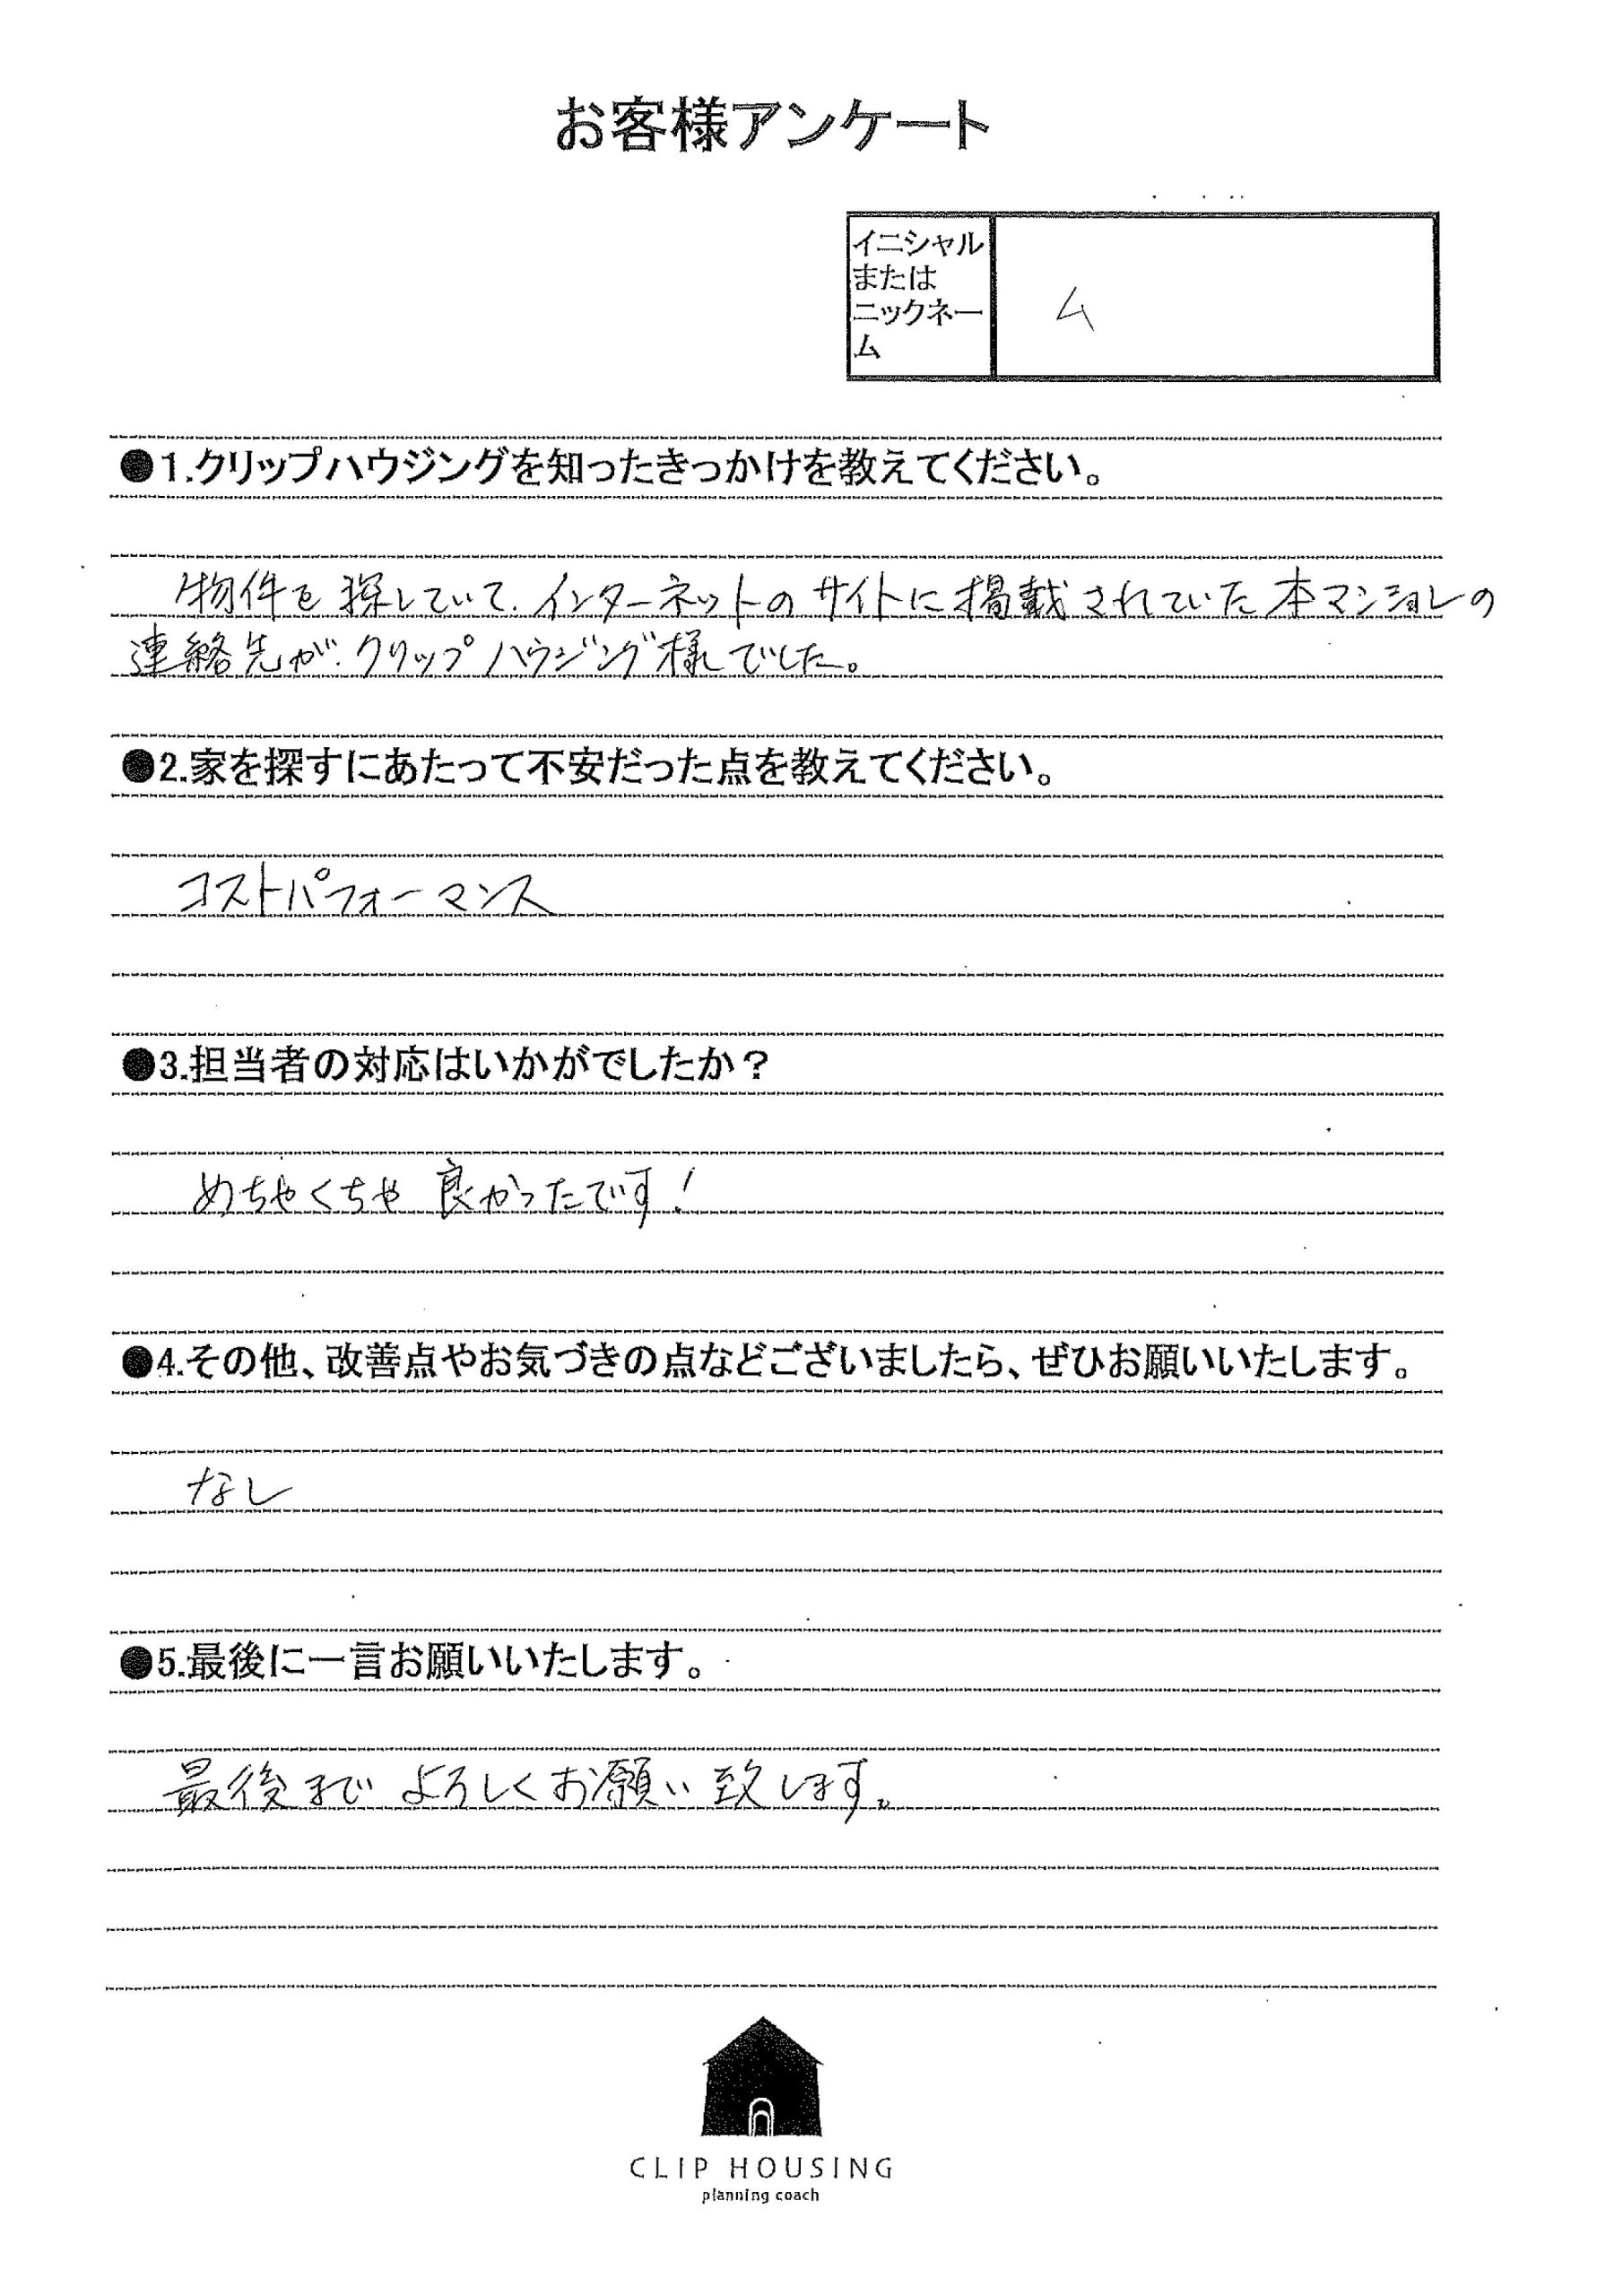 お客様アンケート
イニシャル
または
ニックネー
ム
ム
●1.クリップハウジングを知ったきっかけを教えてください。
物件を探していて、インターネットのサイトに掲載されていた本マンションの
連絡先が、クリップハウジング様でした。
●2.家を探すにあたって不安だった点を教えてください。
コストパフォーマンス
●3.担当者の対応はいかがでしたか?
めちゃくちゃ良かったです!
●4.その他、改善点やお気づきの点などございましたら、ぜひお願いいたします。
なし
●5.最後に一言お願いいたします。
最後まで よろしくお願い致します。
CLIP HOUSING
planning coach